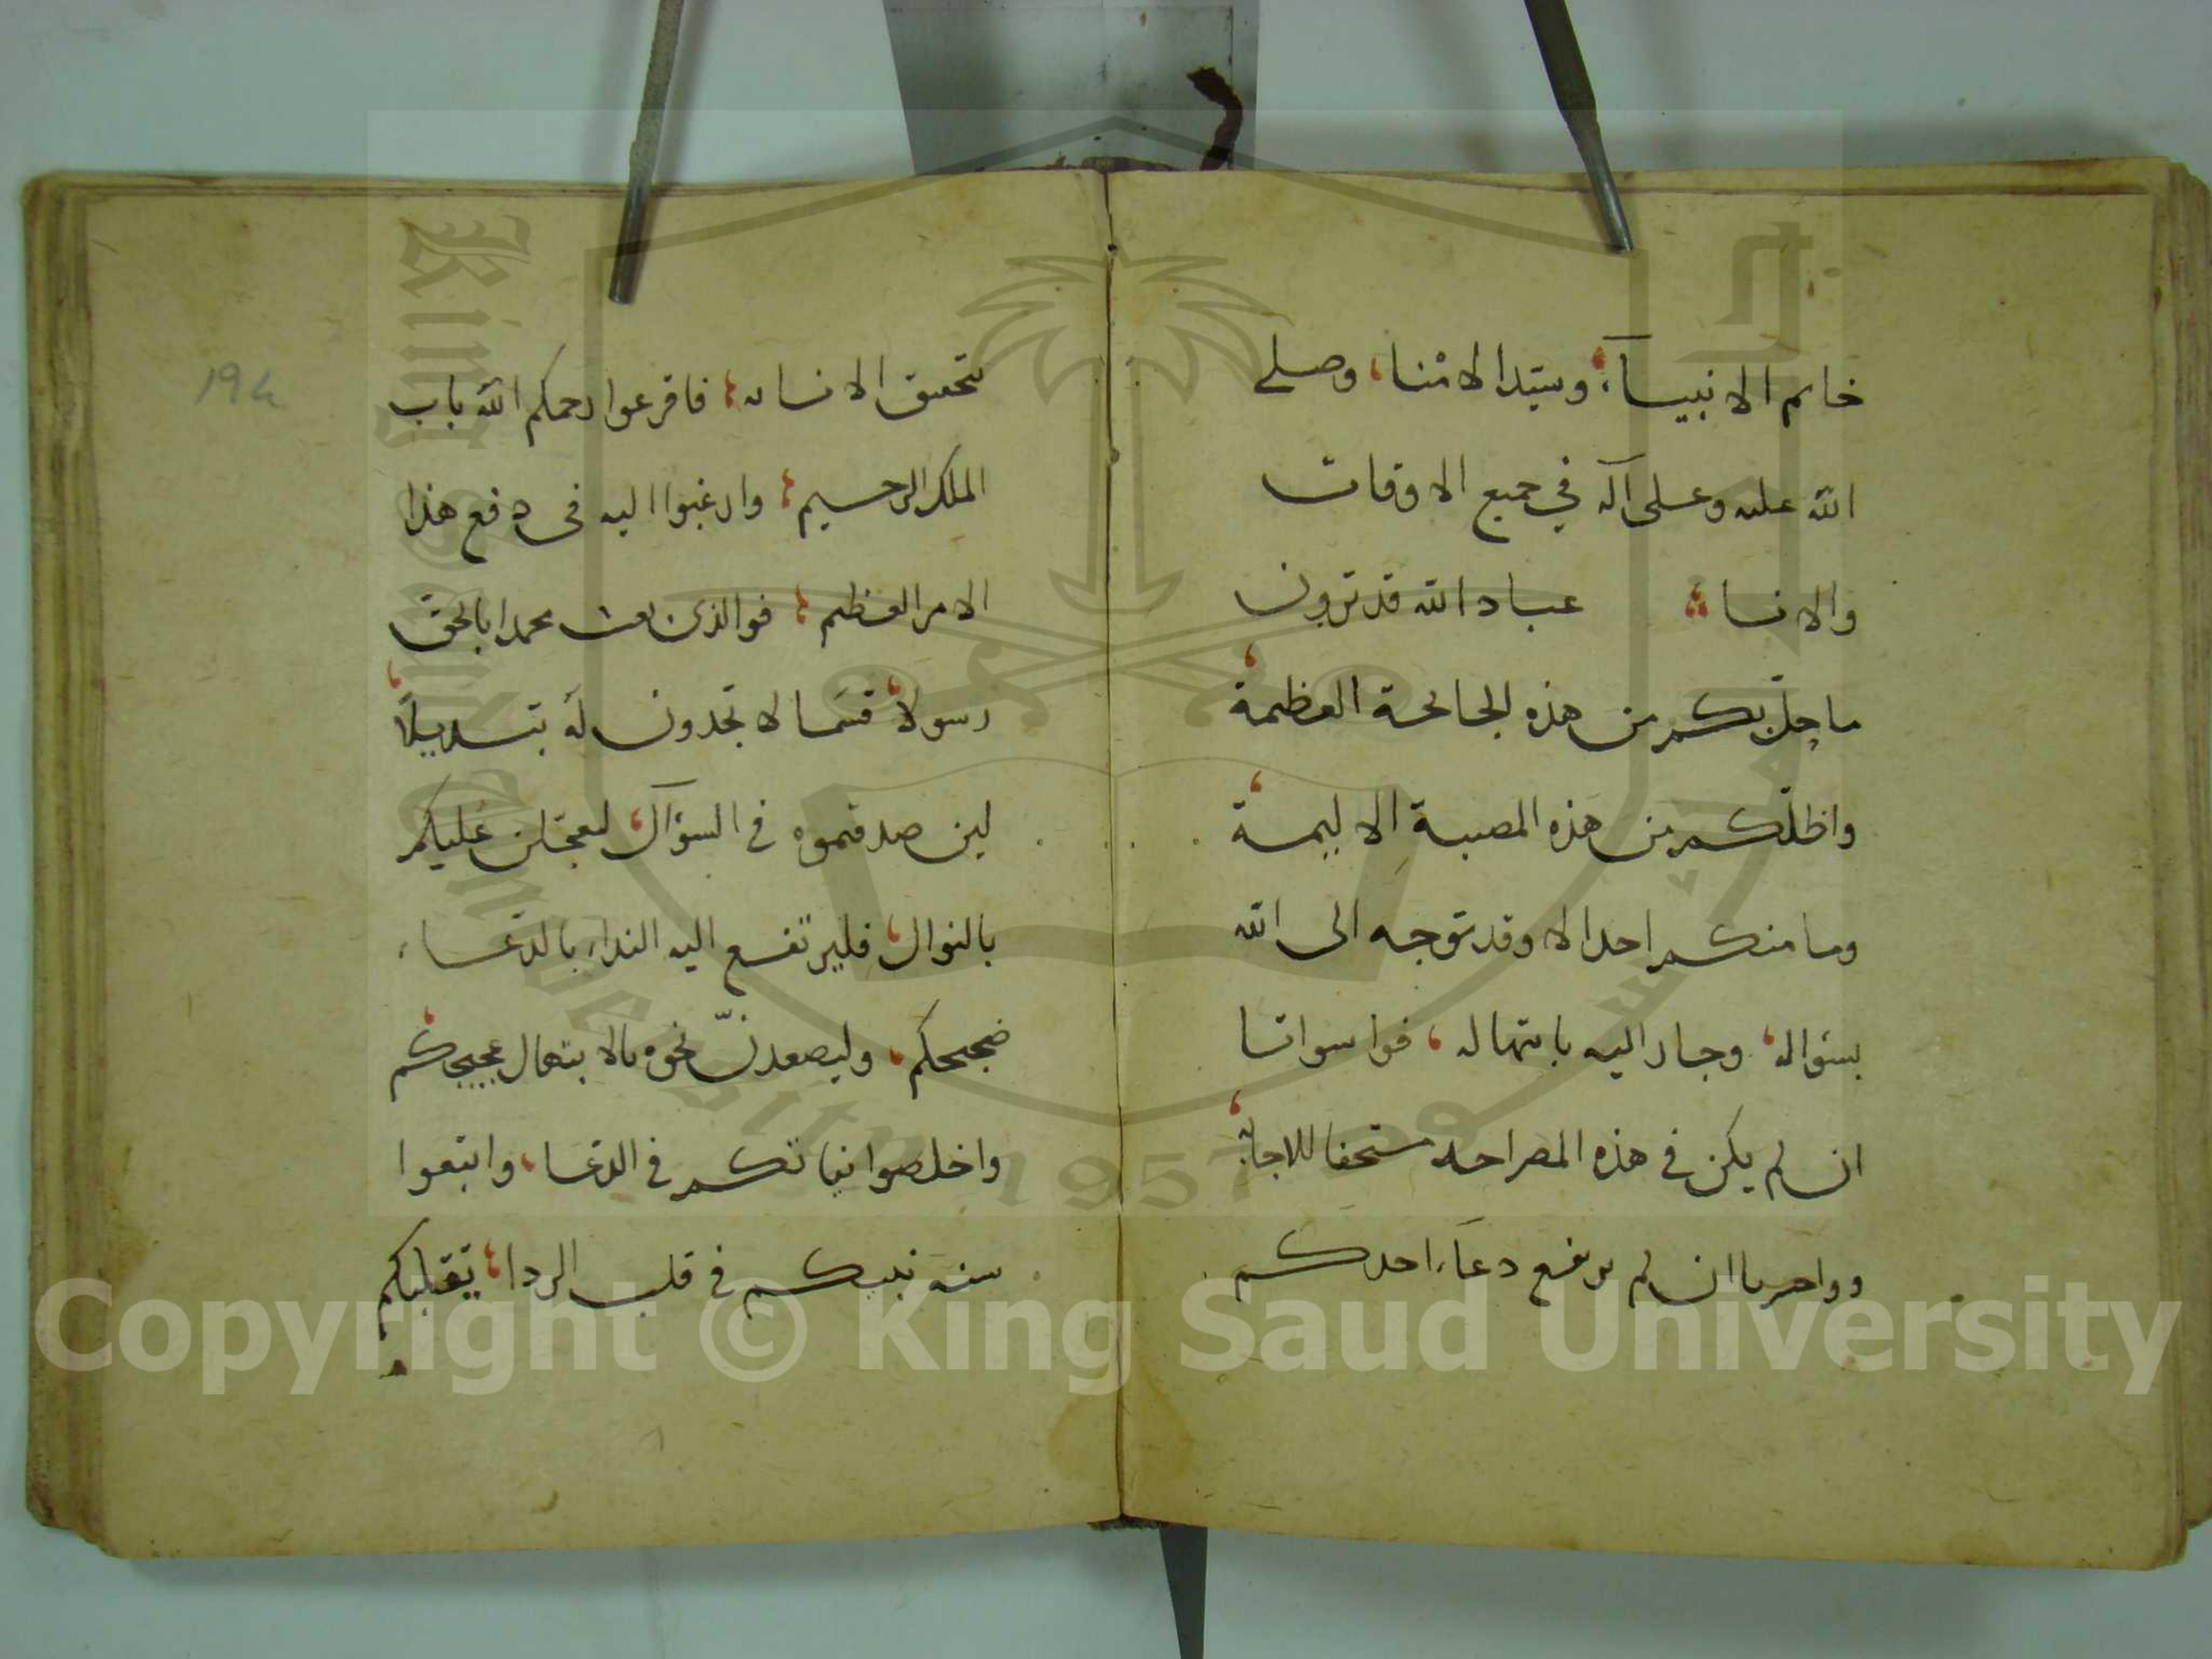 خاتم الانبيآء، وسيّد الامنا، وصلى
الله عليه وعلى آله في جميع الاوقات
والانا عباد الله قد ترون
ما حلّ بكم من هذه الجائحة العظيمة،
واظلّكم من هذه المصيبة الاليمة،
وما منكم احد الا وقد توجه الى الله
بسؤاله، وجار اليه بابتهاله، فوا سواتا
ان لم يكن في هذه المصراحه مستحقا للاجابة،
وواحربا ان لم يرفع دعاء احدكم
بتحقيق الانابه، فاقرعوا رحمكم الله باب
الملك الرحيم، وارغبوا اليه فى دفع هذا
الامر العظيم، فوالذى بعث محمدا بالحق
رسولا، قسَما لا تجدون له تبديلاً،
لين صدقتموه في السؤال، ليعجلن عليكم
بالنوال، فليرتفع اليه النداء بالدعاء،
ضجيجكم، وليصعدنّ نحوه بالابتهال عجيجكم،
واخلصوا نياتكم في الدعا، واتبعوا
سنه نبيكم في قلب الردا، تقبلكم
194
Copyright © King Saud University
King Saud University
1957